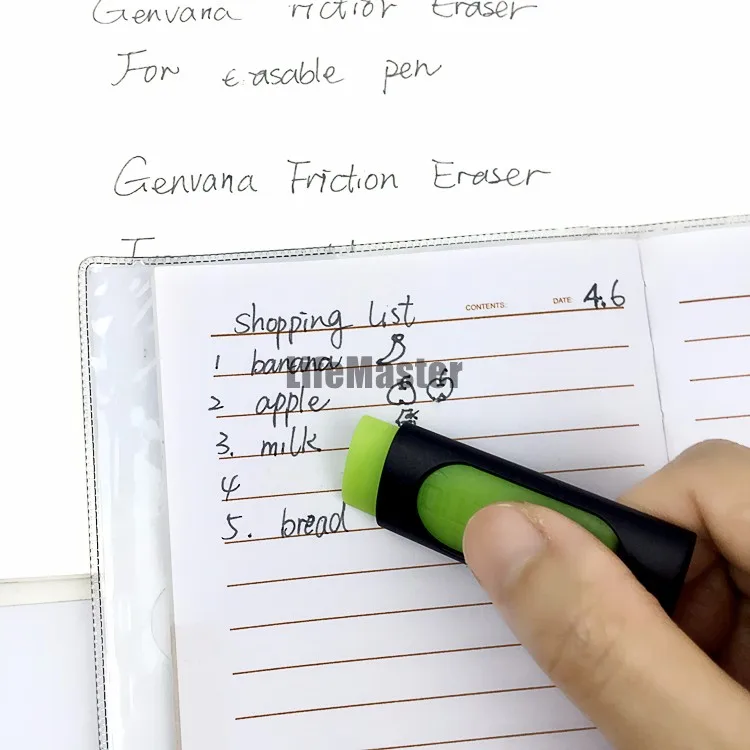 Genvana Friction Eraser
For erasable pen
Genvana Friction Eraser
CONTENTS: DATE: 4.6
shopping list
1 banana
LifeMaster
2 apple
3. milk
4
5. bread